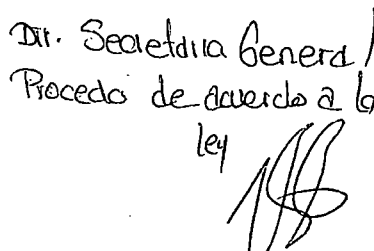 Dir. Secretaría General
Proceda de acuerdo a la
ley